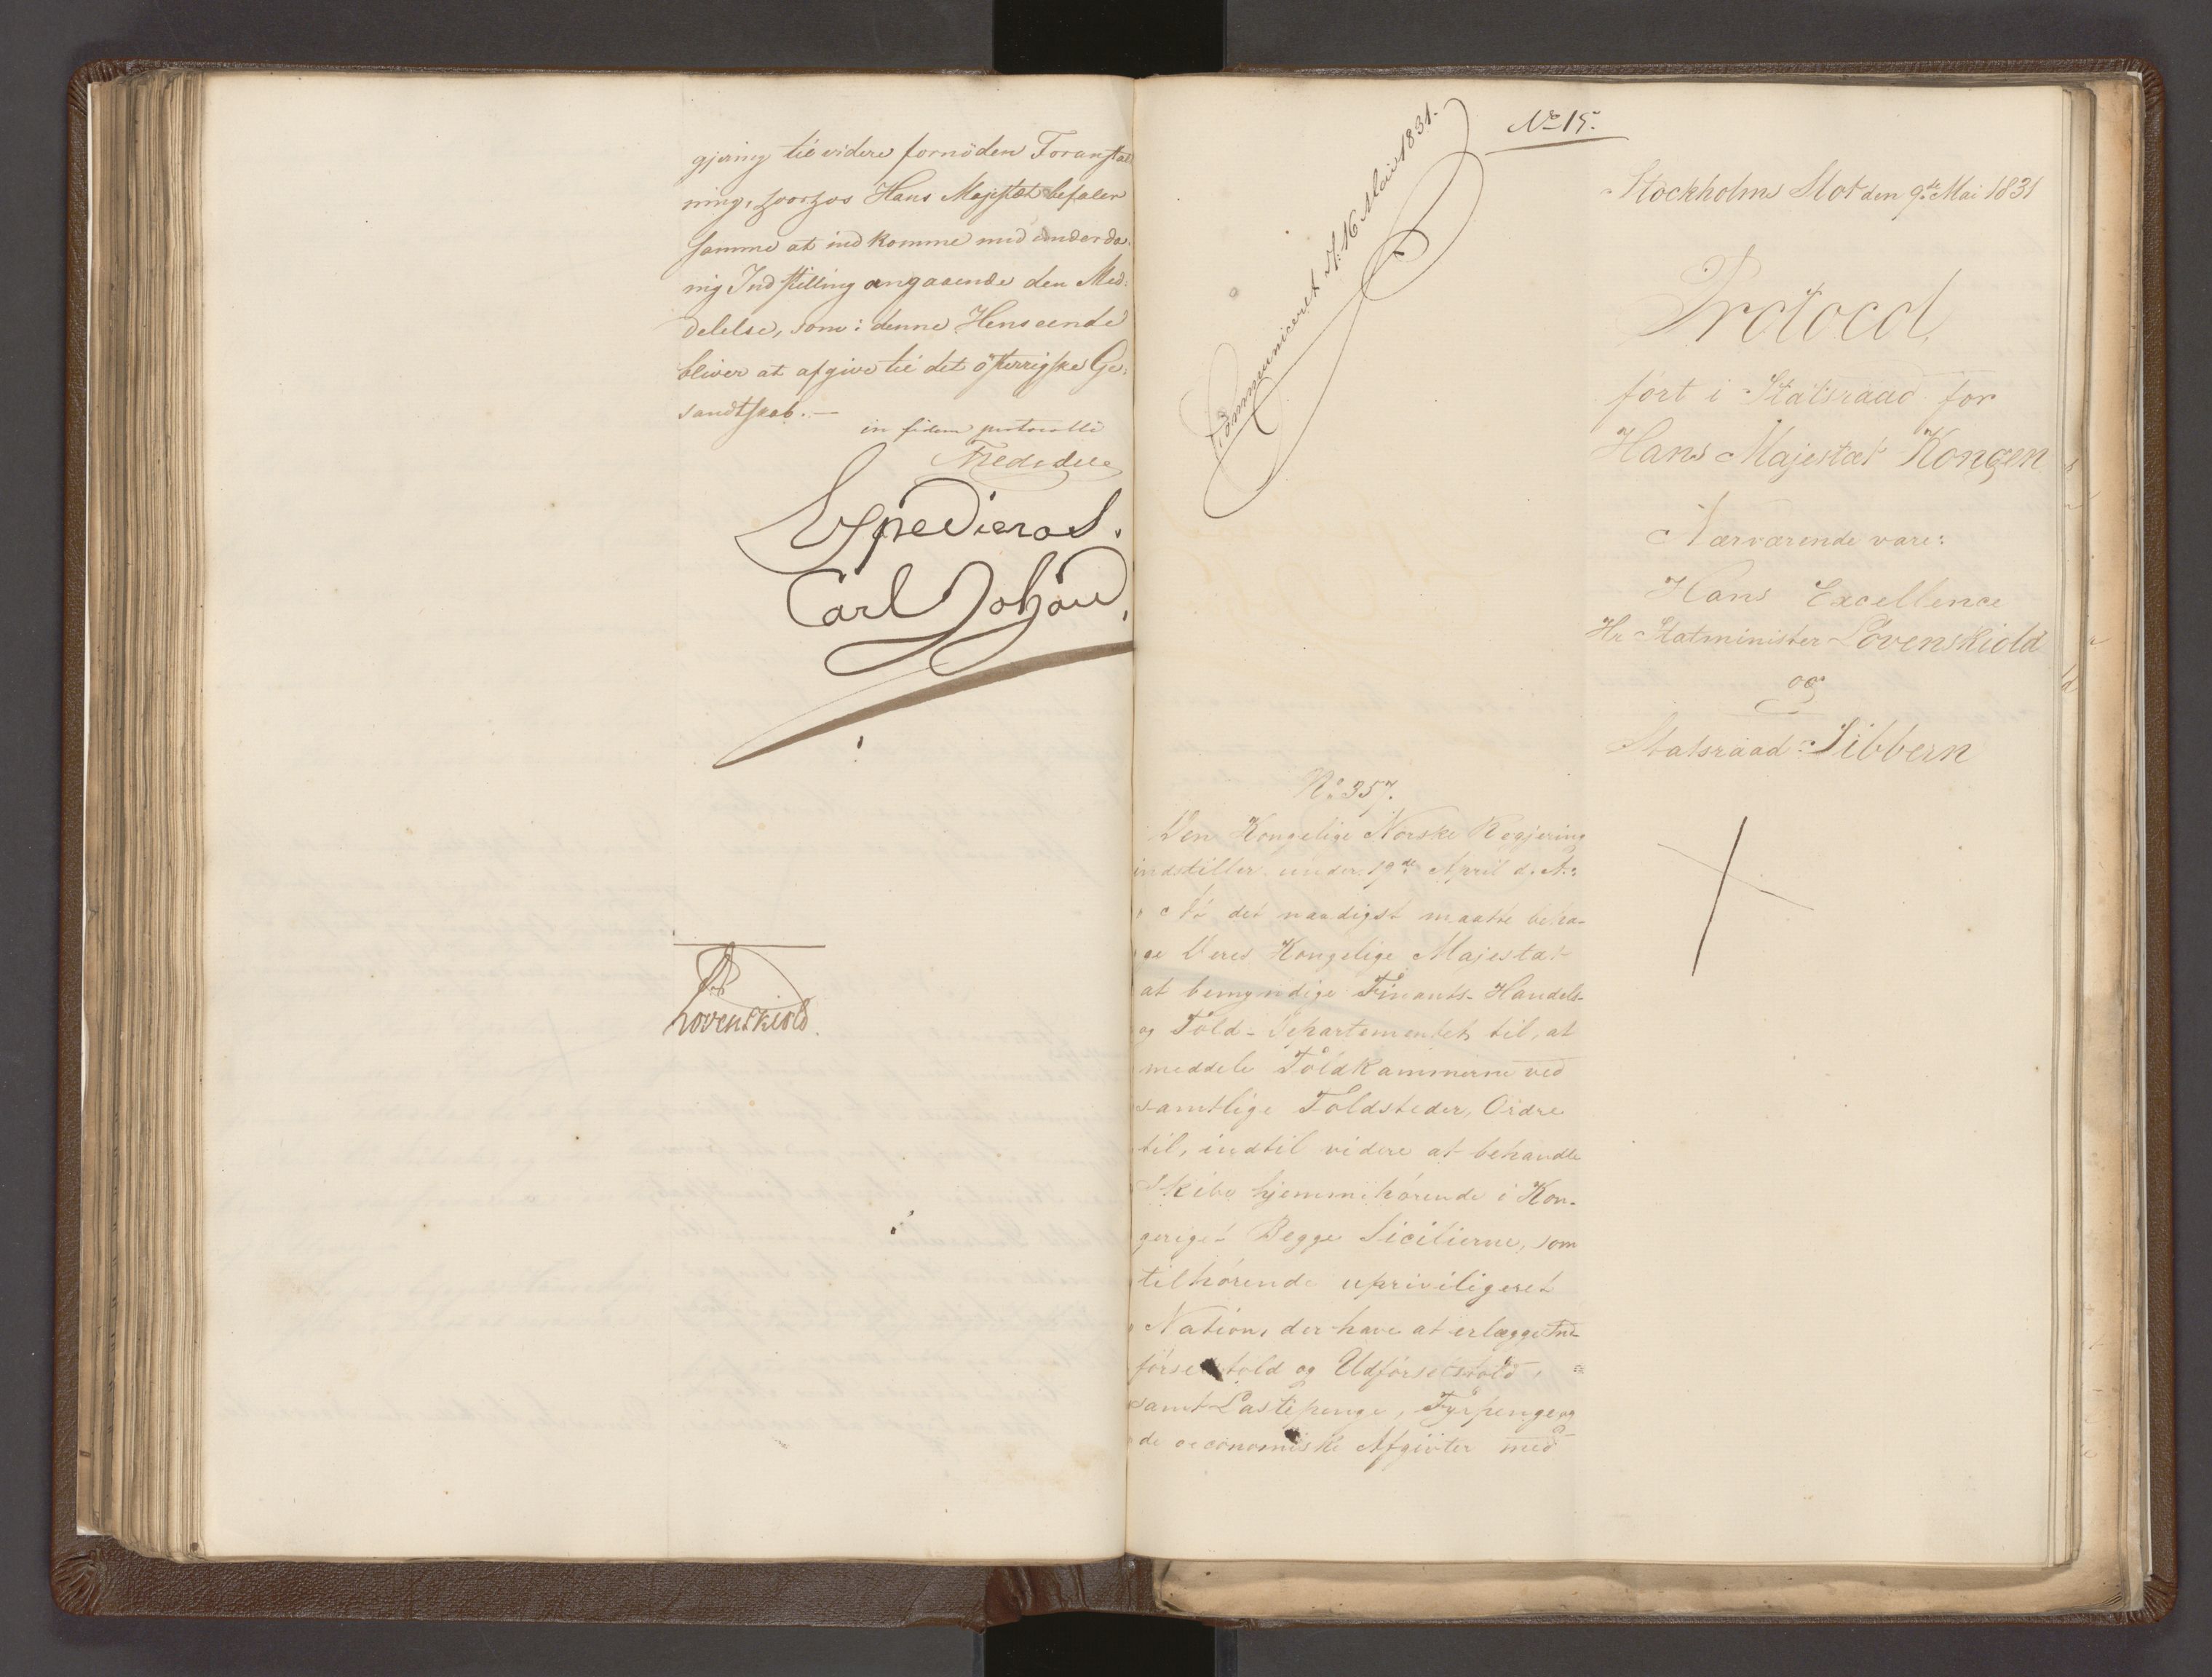 gjering til videre fornöden Foranstalt
ning, hvorhos Hans Majestæt befaler
samme at indkomme med underda-
nig Indstilling angaaende den Med-
delelse, som i denne Henseende
bliver at afgive til det österrigske Ge-
sandtskab. —
in fidem protocolli
Expederas.
Carl Johan
Lövenskiold.
No 15.
Communiceret d. 16 Mai 1831.
Stockholms Slot den 9de Mai 1831
Protocol,
fört i Statsraad for
Hans Majestæt Kongen
Nærværende vare:
Hans Excellence
Hr Statminister Lövenskiold
og
Statsraad Sibbern
No 357.
Den Kongelige Norske Regjering
indstiller under 19de April d. A.:
At det naadigst maatte beha-
ge Deres Kongelige Majestæt
at bemyndige Finants- Handels-
og Told-Departementet til, at
meddele Toldkammerne ved
samtlige Toldsteder, Ordre
til, indtil videre at behandle
Skibe hjemmehörende i Kon-
geriget Begge Sicilierne, som
tilhörende upriviligeret
Nation, der have at erlægge Ind-
förselstold og Udförselstold,
samt Lastepenge, Fyrpenge og
de oeconomiske Afgivter med